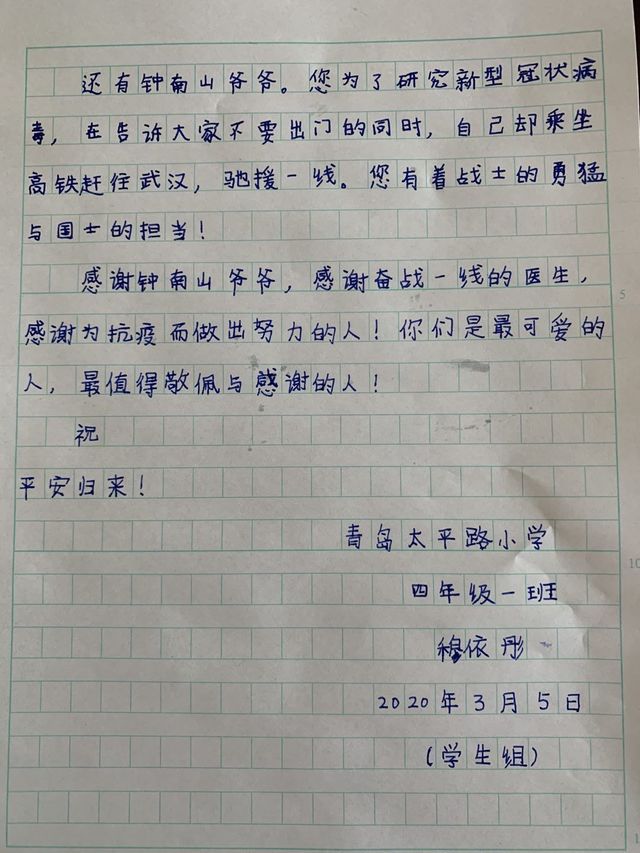 还有钟南山爷爷。您为了研究新型冠状病
毒，在告诉大家不要出门的同时，自己却乘坐
高铁赶往武汉，驰援一线。您有着战士的勇猛
与国士的担当！
感谢钟南山爷爷，感谢奋战一线的医生，
感谢为抗疫而做出努力的人！你们是最可爱的
人，最值得敬佩与感谢的人！
祝
平安归来！
青岛太平路小学
四年级一班
穆依彤
2020年3月5日
（学生组）
5
10